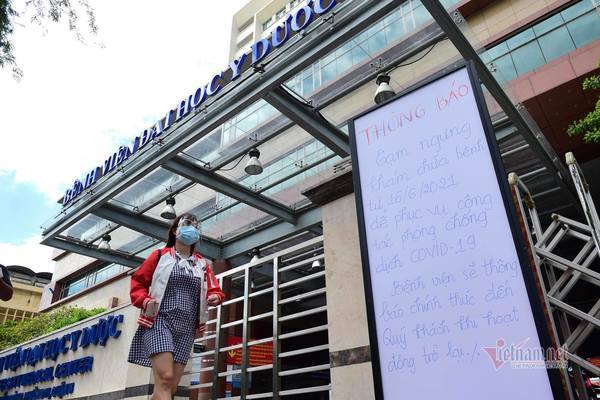 BỆNH VIỆN ĐẠI HỌC Y DƯỢC
THÔNG BÁO
Tạm ngưng
khám chữa bệnh
từ 16/6/2021
để phục vụ công
tác phòng chống
dịch COVID-19
Bệnh viện sẽ thông
báo chính thức đến
Quý khách khi hoạt
động trở lại./.
ĐẠI HỌC Y DƯỢC
CENTER
Vietnam.net